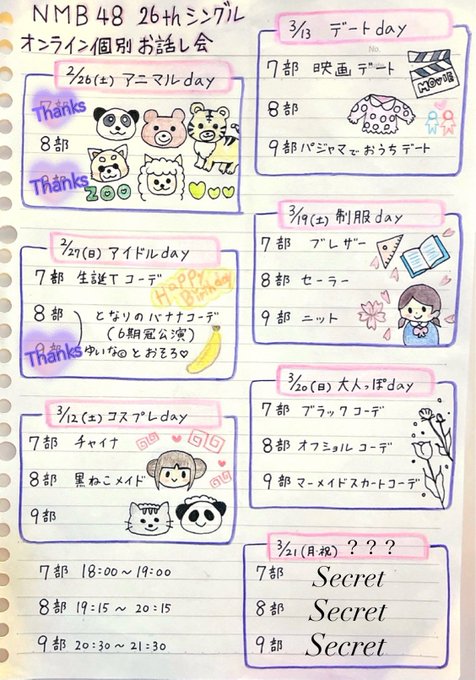 NMB48 26thシングル
オンライン個別お話し会
2/26(土) アニマルday
Thanks
8部
Thanks
ZOO
2/27(日) アイドルday
7部 生誕Tコーデ
Happy Birthday
8部
となりのバナナコーデ
(6期冠公演)
Thanks
ゆいな©とおそろ♡
3/12(土) コスプレday
7部 チャイナ
8部 黒ねこメイド
9部
7部 18:00~19:00
8部 19:15~20:15
9部 20:30~21:30
3/13 デートday
No.
7部 映画デート
MOVIE
8部
9部 パジャマでおうちデート
3/19(土) 制服day
7部 ブレザー
8部 セーラー
9部 ニット
3/20(日) 大人っぽday
7部 ブラックコーデ
8部 オフショルコーデ
9部 マーメイドスカートコーデ
3/21(月・祝) ???
7部 Secret
8部 Secret
9部 Secret